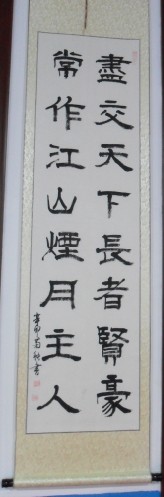 盡交天下長者賢豪
常作江山煙月主人